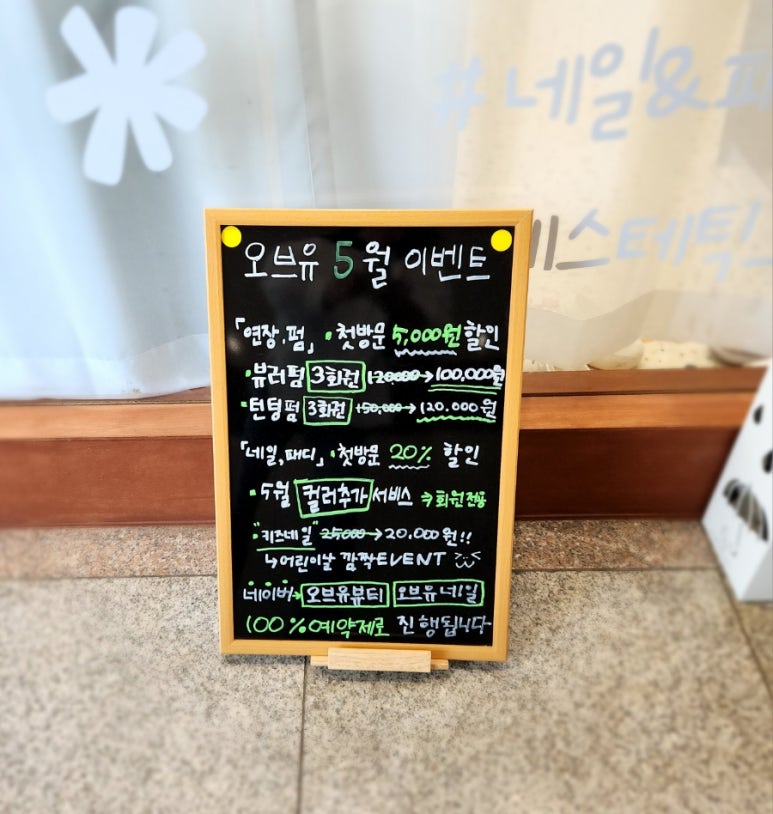 #네일&페
에스테틱
오브유 5월 이벤트
「연장.펌」 • 첫방문 5,000원 할인
• 뷰러펌 3회권 120000→100,000원
• 틴팅펌 3회권 150,000→120.000원
「네일,패디」 • 첫방문 20% 할인
• 5월 컬러추가 서비스 →회원전용
"키즈네일" 25000→20.000원!!
↳어린이날 깜짝EVENT
네이버→ 오브유뷰티 오브유네일
100%예약제로 진행됩니다